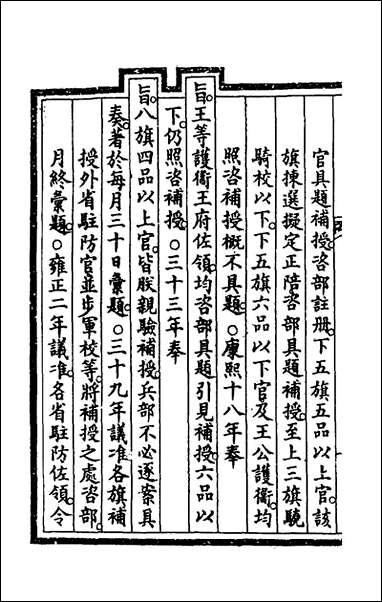 官具題補授。咨部註册。下五旗五品以上官。該
旗揀選擬定正陪咨部具題補授。至上三旗驍
騎校以下。下五旗六品以下官。及王公護衞。均
照咨補授。槪不具題。○康熙十八年奉
旨。王等護衞。王府佐領。均咨部具題引見補授。六品以
下。仍照咨補授。○三十三年奉
旨。八旗四品以上官。皆朕親驗補授。兵部不必逐案具
奏。著於每月三十日彙題。○三十九年議准。各旗補
授外省駐防官。並步軍校等。將補授之處咨部。
月終彙題。○雍正二年議准。各省駐防佐領。令